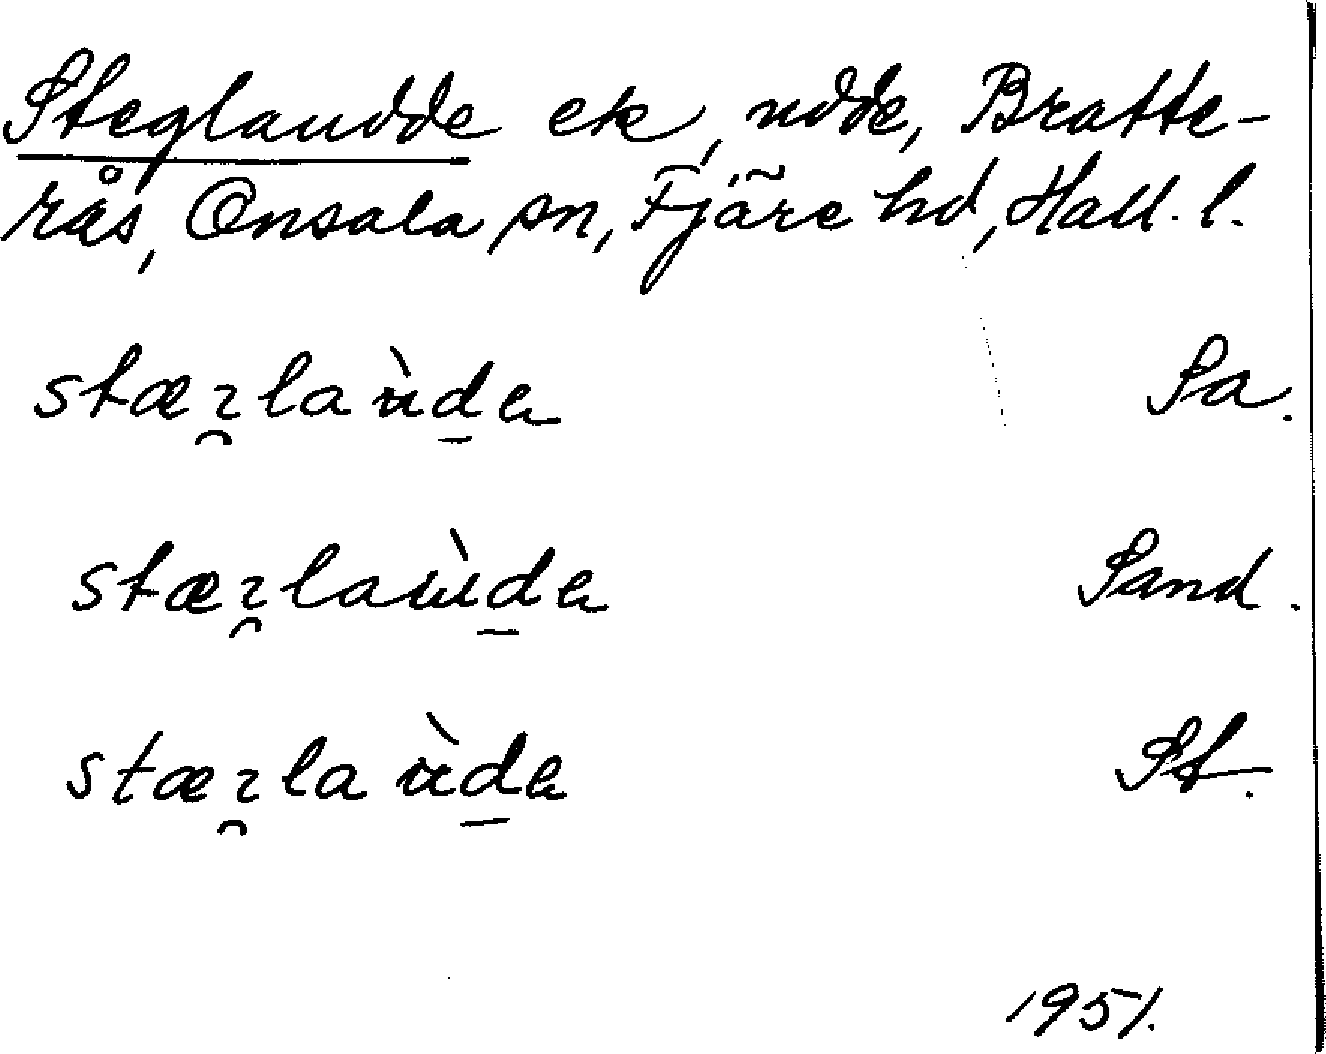 Steglaudde ek, udde, Bratte-
rås, Onsala sn, Fjäre hd, Hall. l.
stæɿ̯laùde Sa.
stæɿ̯laùde Sand.
stæɿ̯laùde St.
1951.